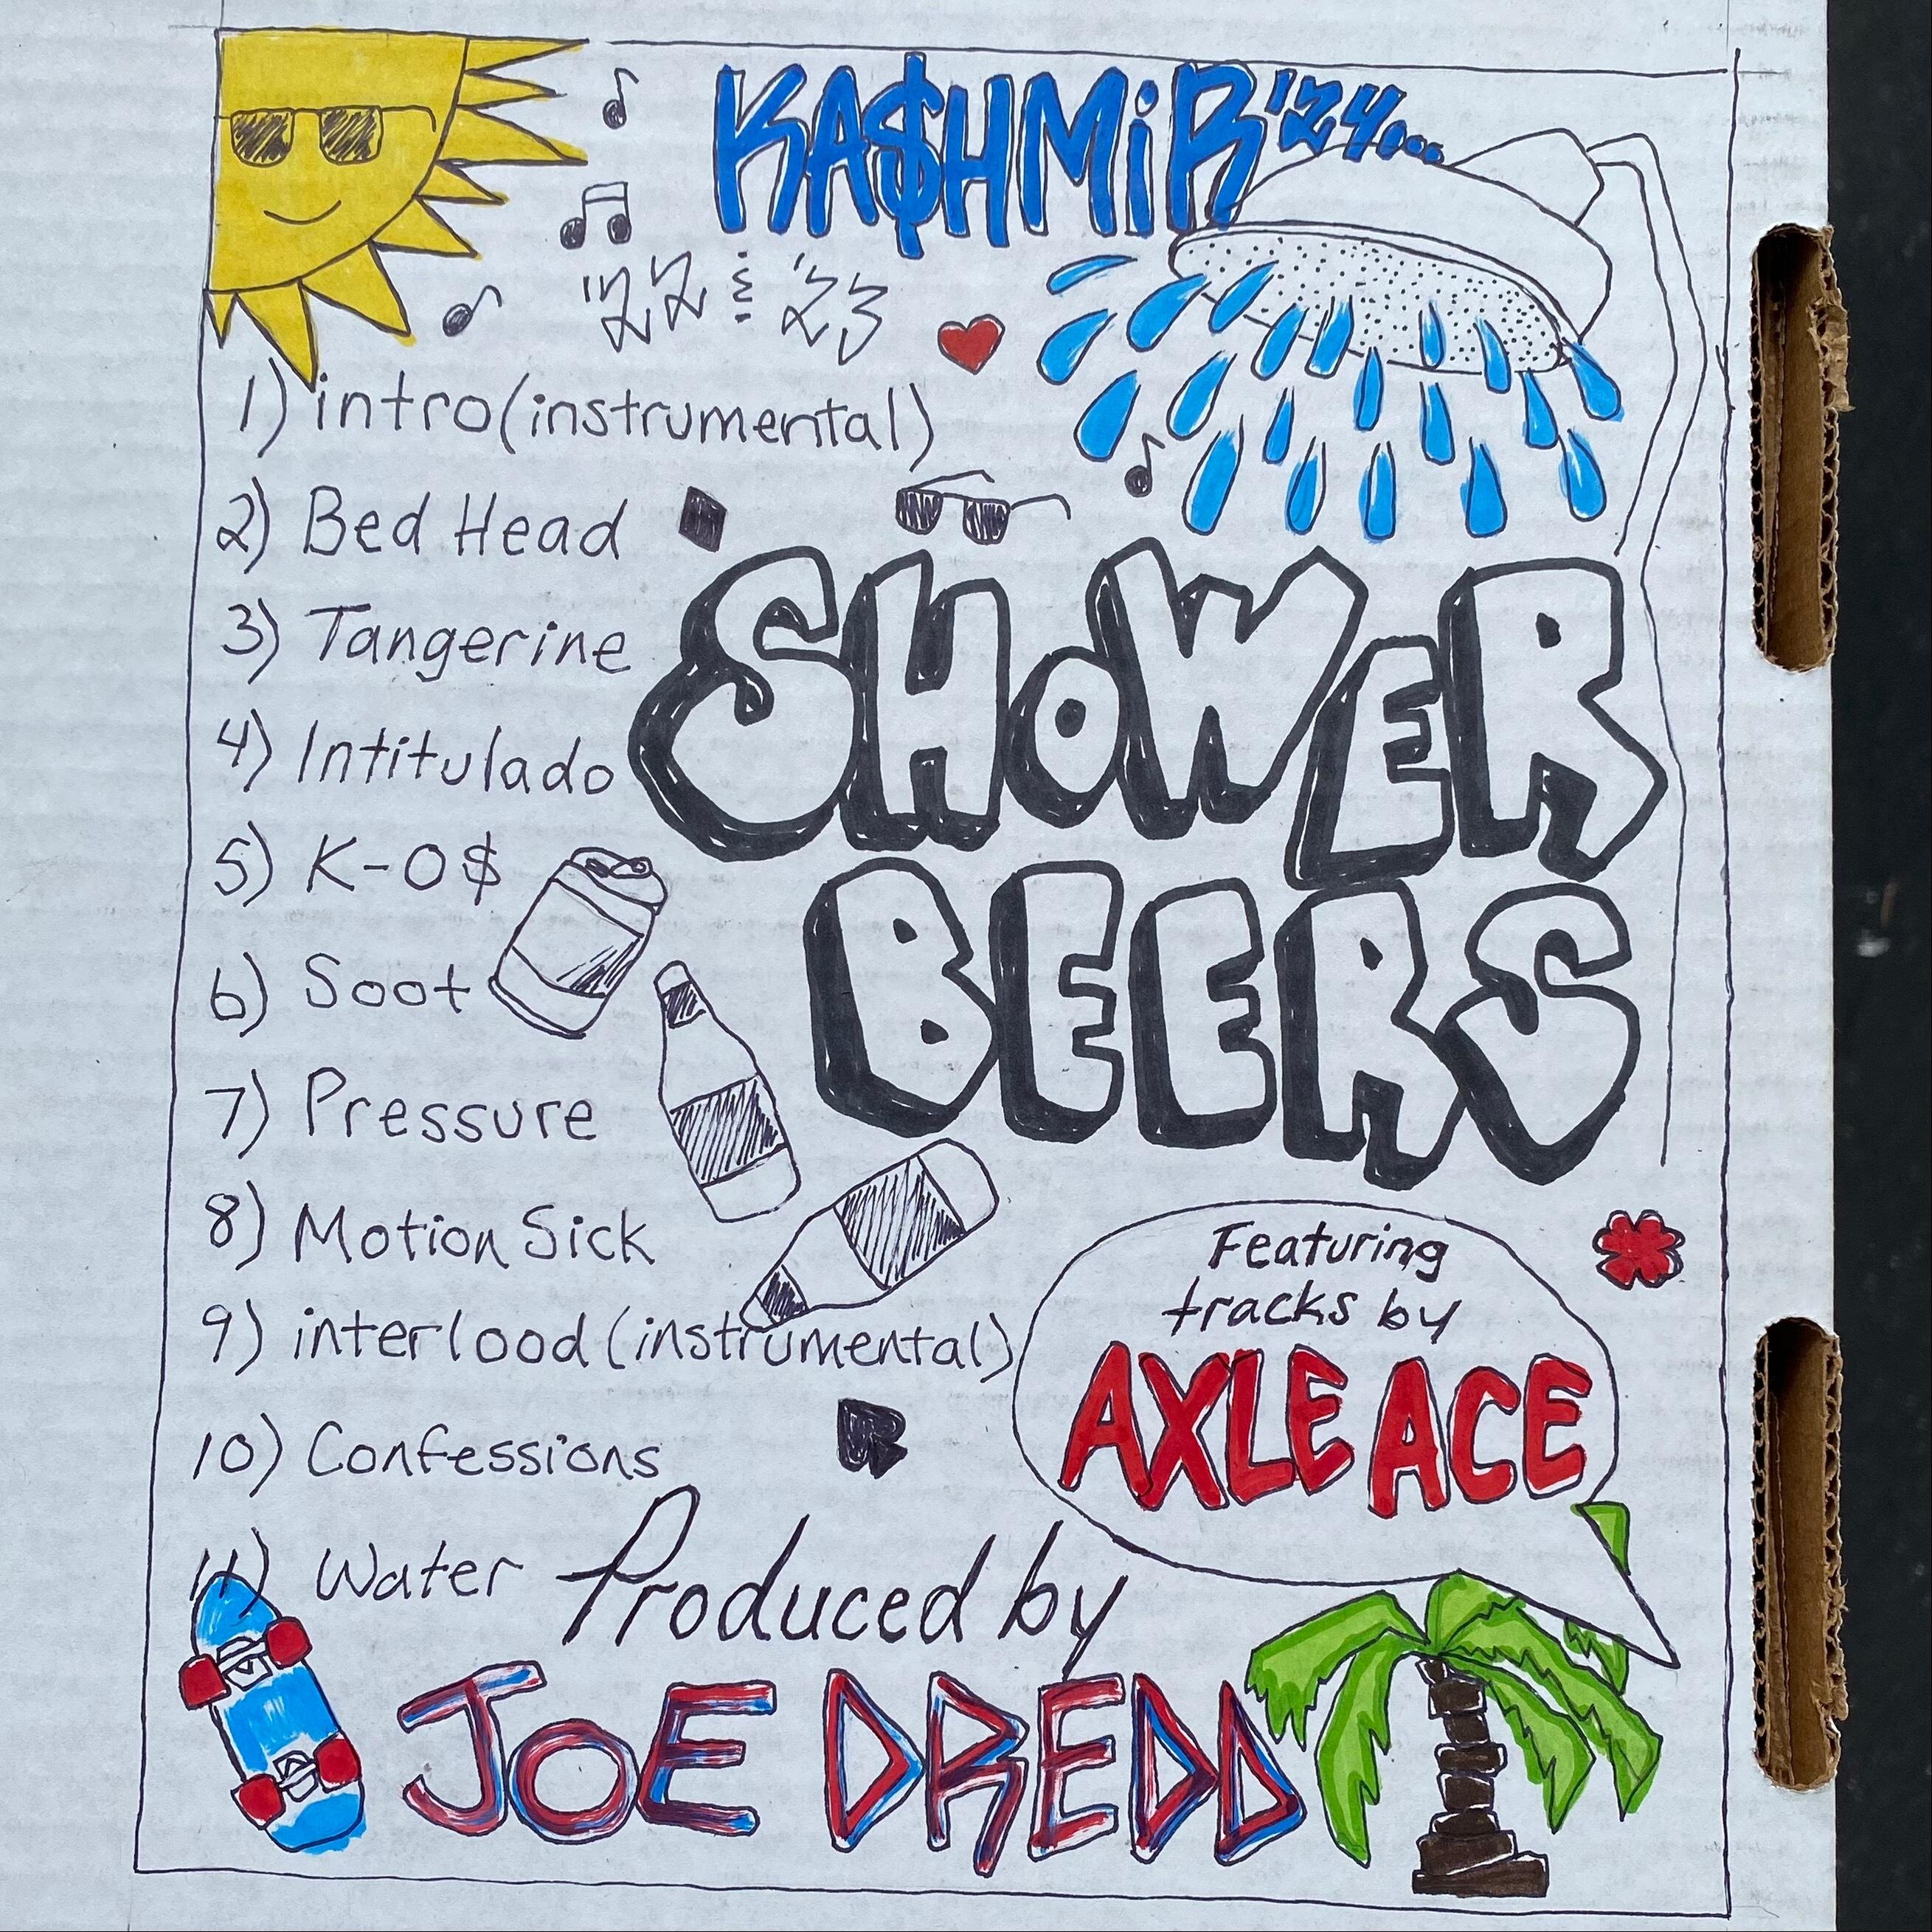 KA$HMiR '24...
'22 & '23
1) intro (instrumental)
2) Bed Head
3) Tangerine
4) Intitulado
5) K-O$
6) Soot
7) Pressure
8) Motion Sick
9) interlood (instrumental)
10) Confessions
11) Water
SHOWER
BEERS
Featuring
tracks by
AXLE ACE
Produced by
JOE DREDD